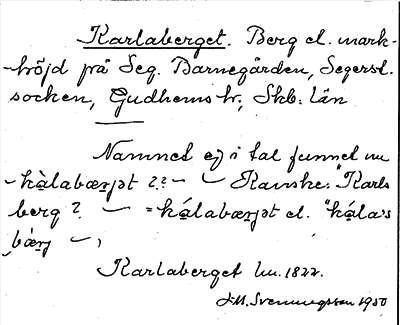 Karlaberget. Berg el. mark-
-höjd på Seg. Barnegården, Segerst.
socken, Gudhems hr, Skb. län
Namnet ej i tal funnet nu
- kàlabærjət ?? - Kanske: "Karls
berg? - = kálabærjət el. "kála's
bærj -,
Karlaberget hn. 1822.
J.M. Svenningsson 1950